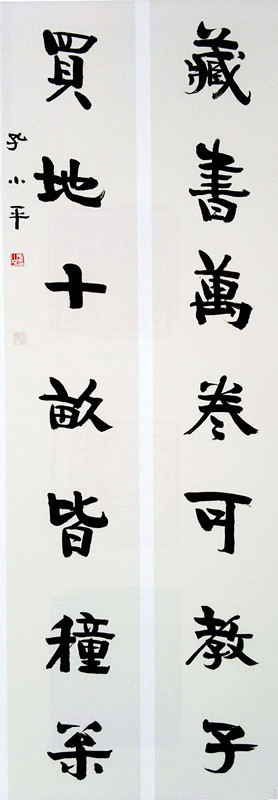 藏書萬卷可教子
買地十畝皆種茶
孔小平